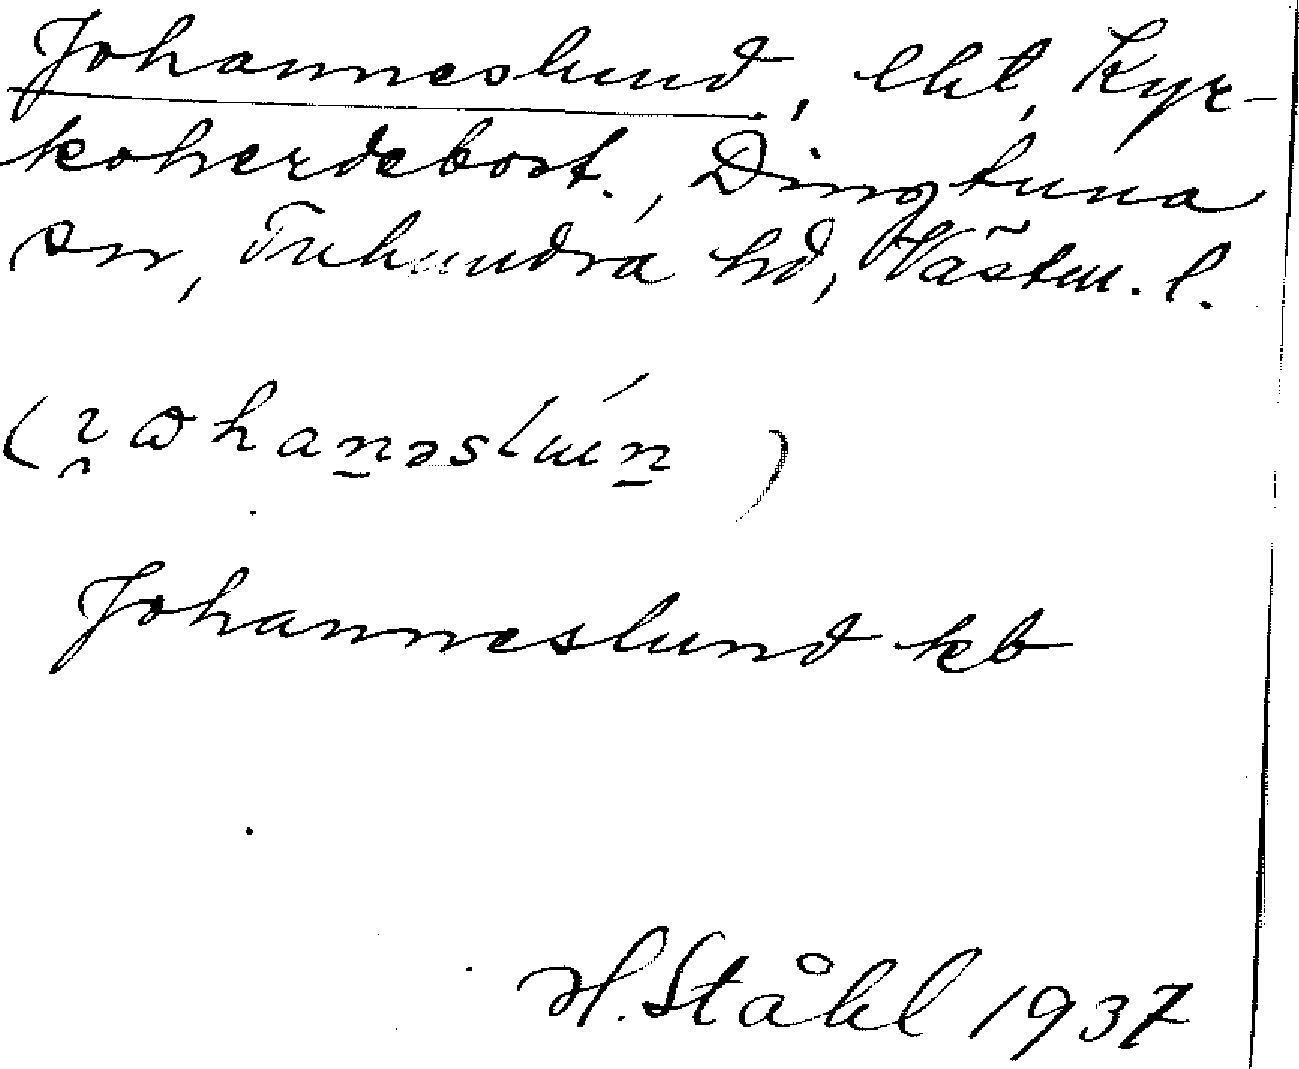 Johanneslund, lht, Kyr-
koherdebost., Dingtuna
sn, Tuhundra hd, Västm. l.
Johanneslund kb
H. Ståhl 1937